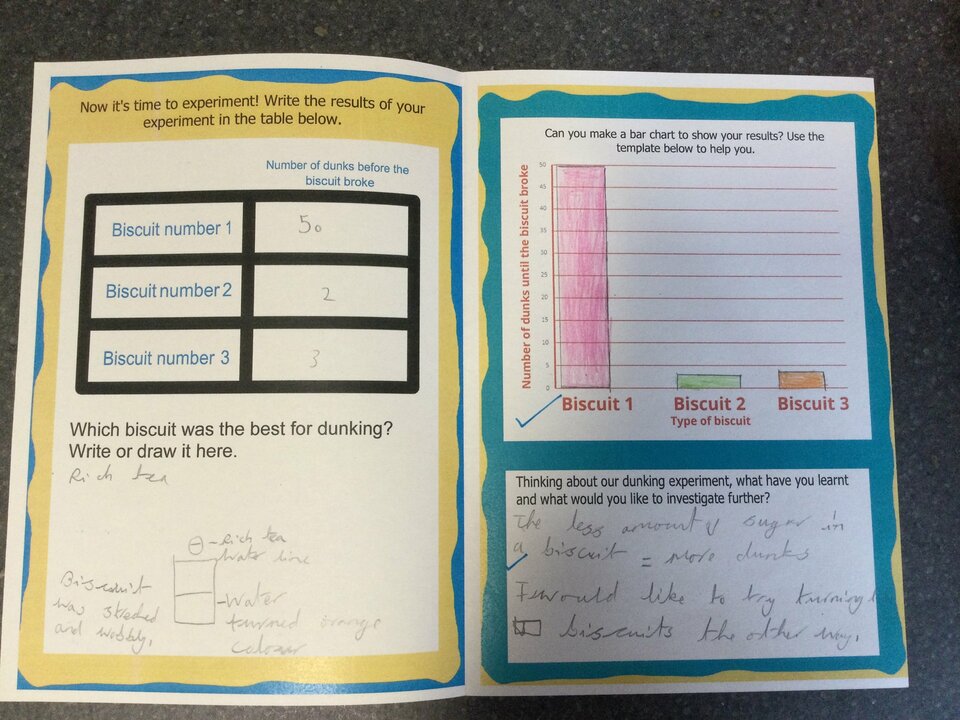 Now it's time to experiment! Write the results of your
experiment in the table below.
Number of dunks before the
biscuit broke
Biscuit number 1
50
Biscuit number 2
2
Biscuit number 3
3
Which biscuit was the best for dunking?
Write or draw it here.
Rich tea
Rich tea
Water line
Water
turned orange
colour
Biscuit
was
and wobbly.
Can you make a bar chart to show your results? Use the
template below to help you.
Number of dunks until the biscuit broke
50
45
40
35
30
25
20
15
10
5
0
Biscuit 1
Biscuit 2
Biscuit 3
Type of biscuit
Thinking about our dunking experiment, what have you learnt
and what would you like to investigate further?
The less amount of sugar in
a biscuit = more dunks
I would like to try turning
biscuits the other way.